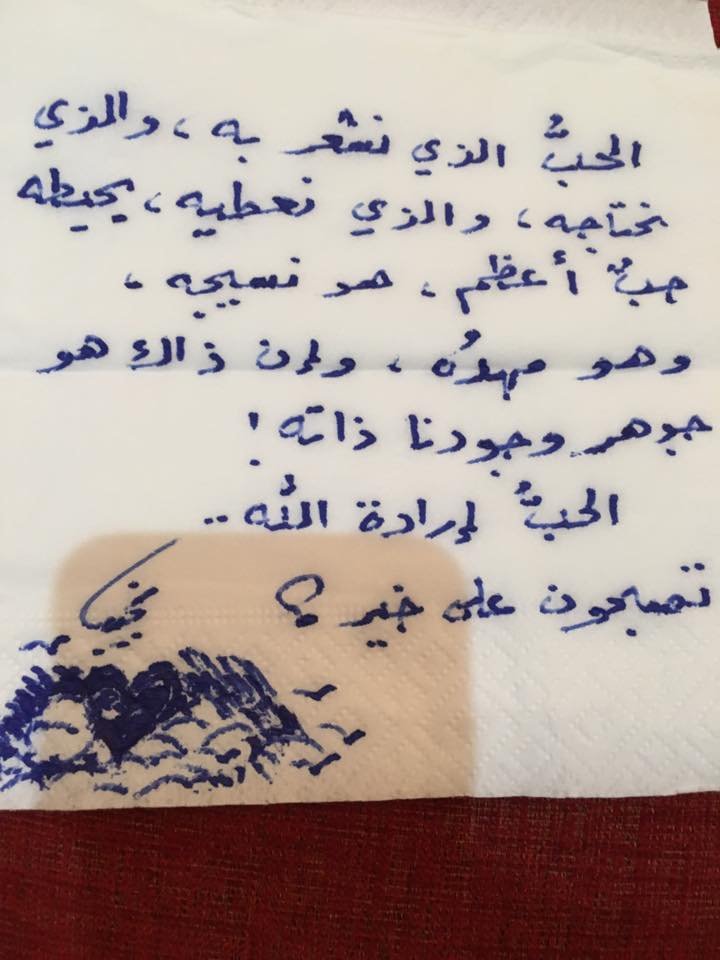 الحبُّ الذي نشعر به، والذي
نحتاجه، والذي نعطيه، يحيطه
حبٌّ أعظم، هو نسيجه،
وهو مهدُه، وإن ذاك هو
جوهر وجودنا ذاته!
الحبُّ إرادة الله..
تصبحون على خير